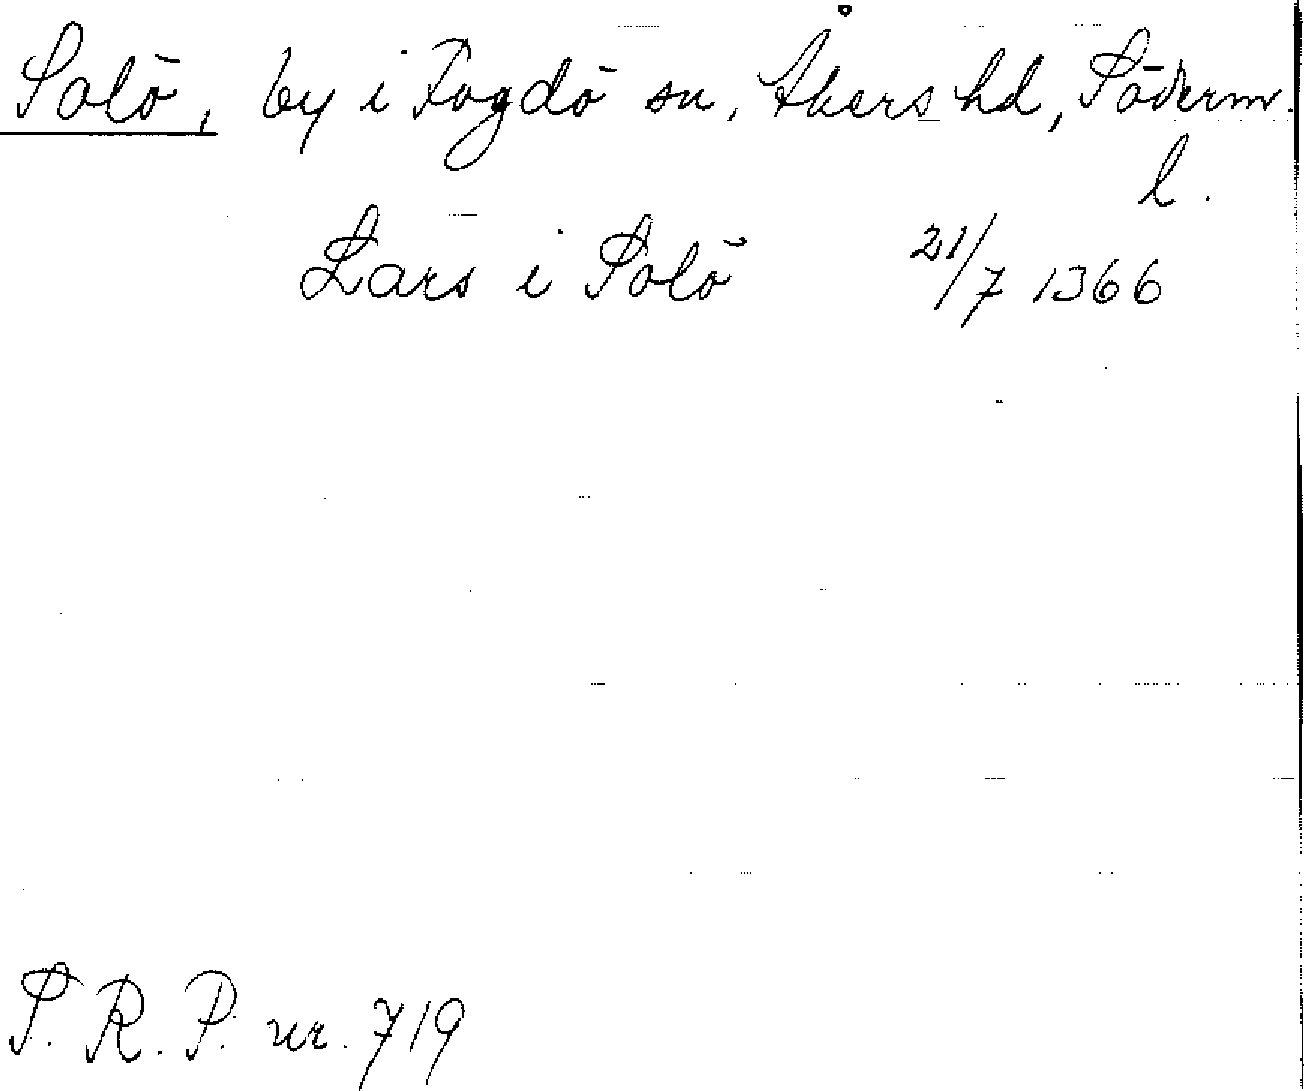 Solö, by i Fogdö sn, Åkers hd, Söderm.
l.
Lars i Solö 21/7 1366
S. R. P. nr. 719